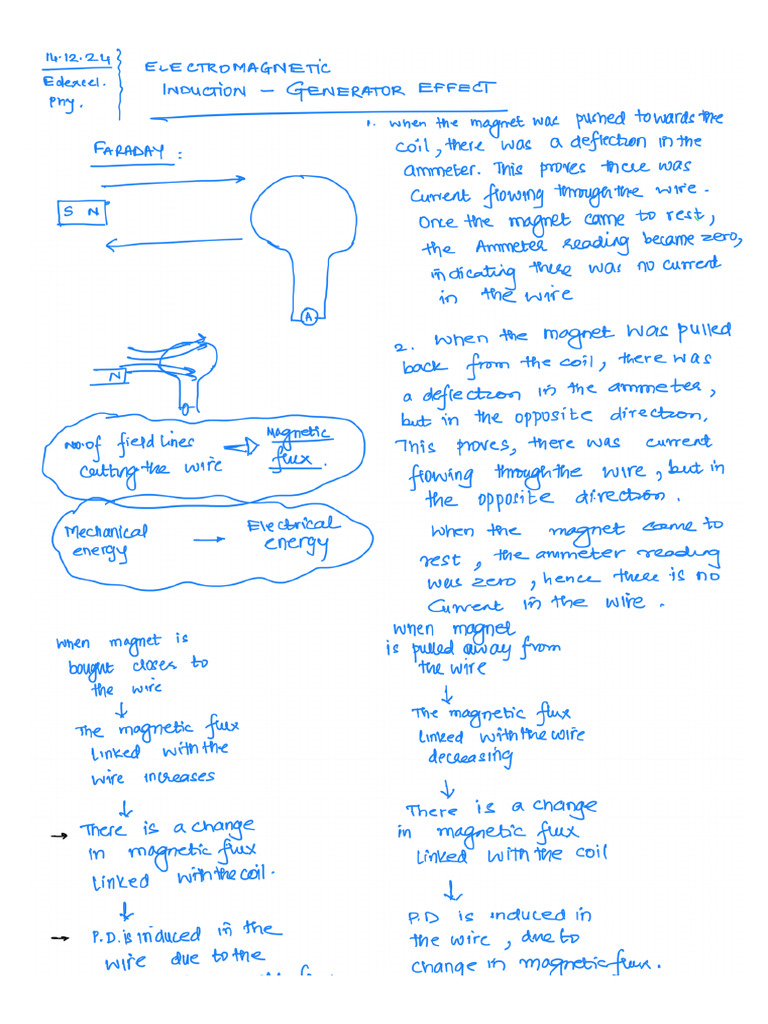 14.12.24
Edexcel.
Phy.
ELECTROMAGNETIC
INDUCTION – GENERATOR EFFECT
FARADAY :
S N
A
N
No. of field lines
cutting the wire
Magnetic
flux.
Mechanical
energy
Electrical
energy
1. When the magnet was pushed towards the
coil, there was a deflection in the
ammeter. This proves there was
current flowing through the wire.
Once the magnet came to rest,
the Ammeter reading became zero,
indicating there was no current
in the wire
2. When the magnet was pulled
back from the coil, there was
a deflection in the ammeter,
but in the opposite direction.
This proves, there was current
flowing through the wire, but in
the opposite direction.
When the magnet came to
rest, the ammeter reading
was zero, hence there is no
current in the wire.
When magnet is
bought closer to
the wire
The magnetic flux
linked with the
wire increases
There is a change
in magnetic flux
linked with the coil.
P.D. is induced in the
wire due to the
When magnet
is pulled away from
the wire
The magnetic flux
linked with the wire
decreasing
There is a change
in magnetic flux
linked with the coil
P.D is induced in
the wire, due to
change in magnetic flux.